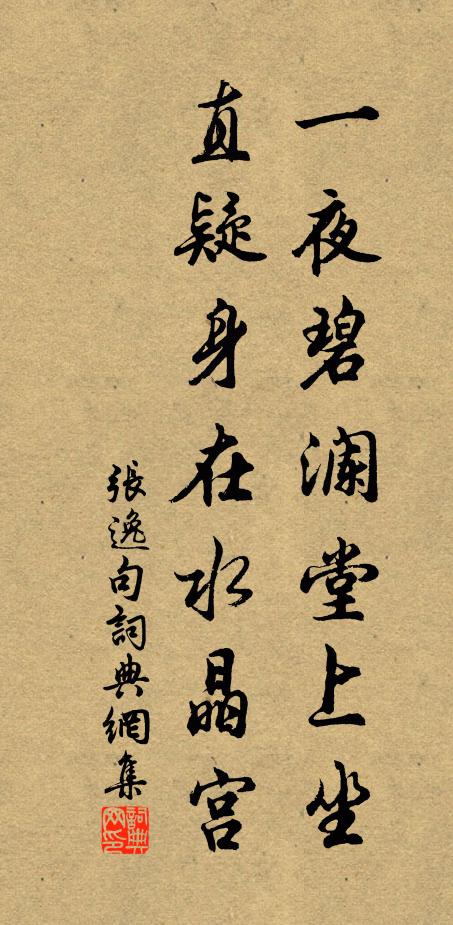 一夜碧澜堂上坐
直疑身在水晶宫
張逸句詞典網集
詞典網印